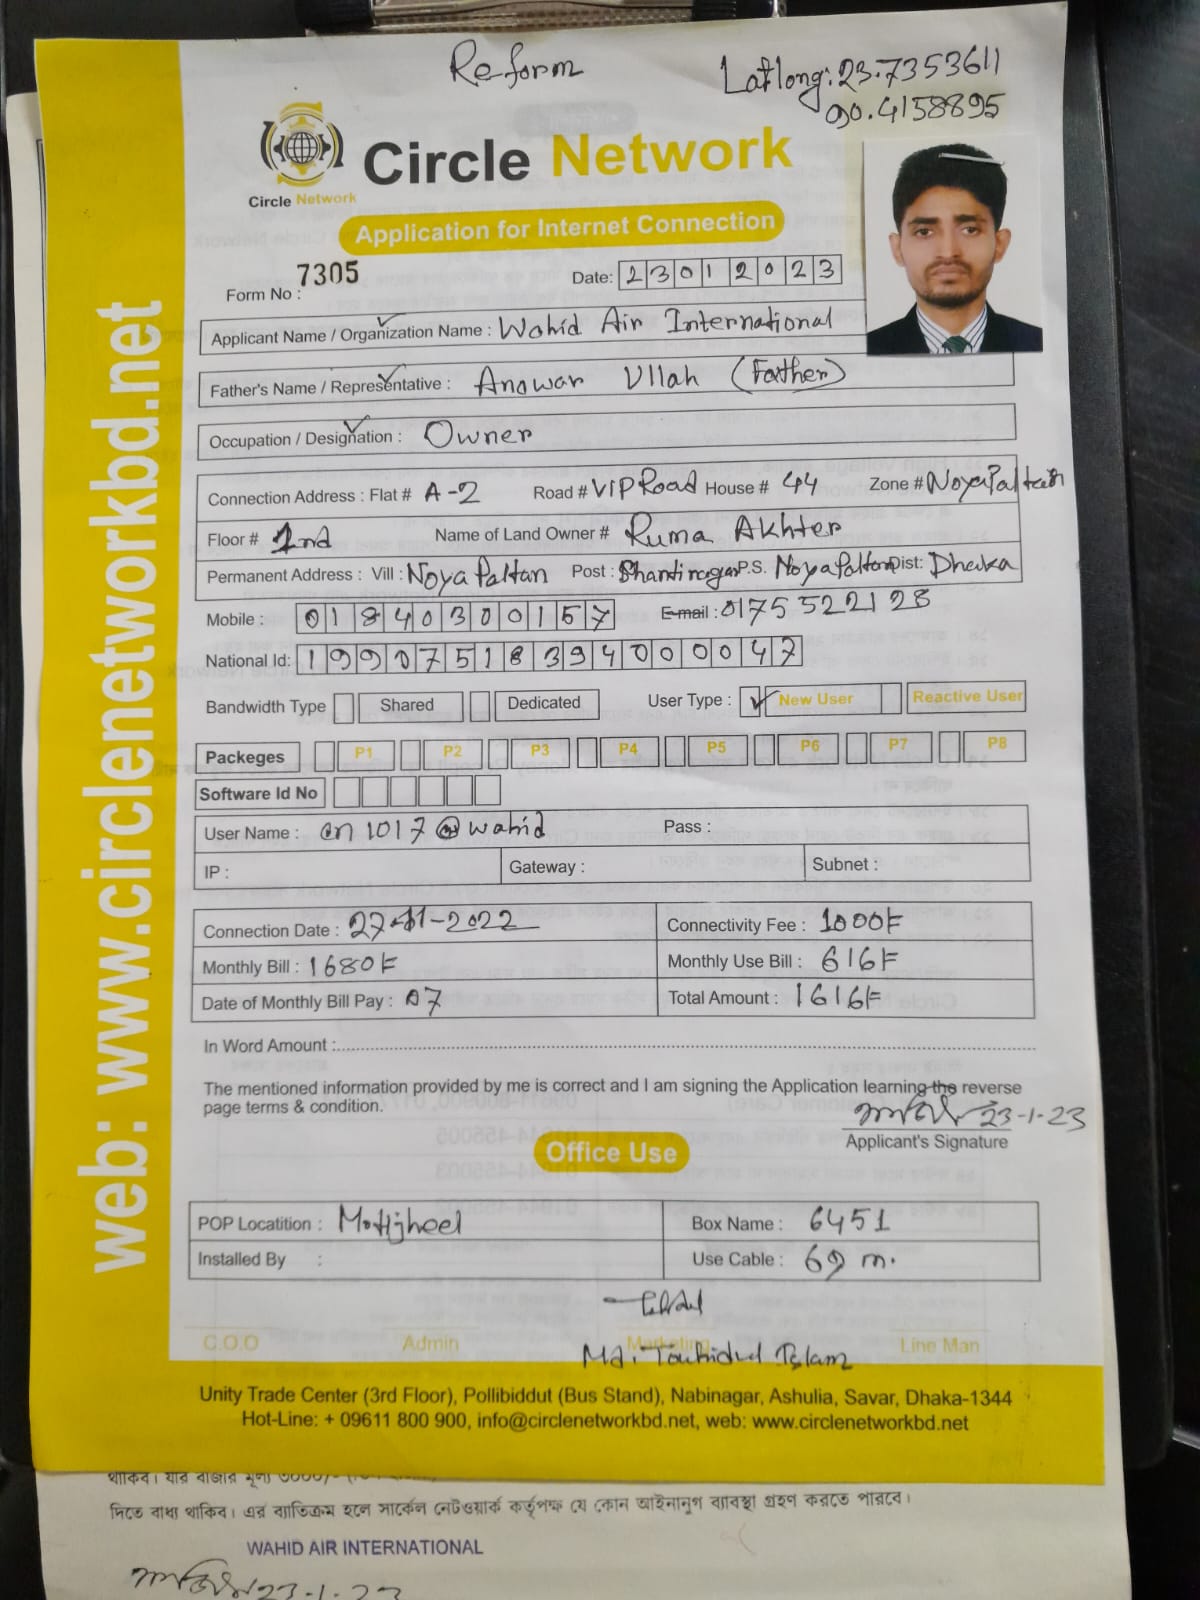 Re-form
Latlong: 23.7353611
90.4158895
Circle Network
Circle Network
Application for Internet Connection
Form No : 7305
Date: 23012023
Applicant Name / Organization Name : Wahid Air International
Father's Name / Representative : Anowar Ullah (Father)
Occupation / Designation : Owner
Connection Address : Flat # A-2 Road # VIP Road House # 44 Zone # NoyaPaltan
Floor # 2nd Name of Land Owner # Ruma Akhter
Permanent Address : Vill : Noya Paltan Post : Shantinagar P.S. NoyaPaltan Dist: Dhaka
Mobile : 01840300157 E-mail : 01755522128
National Id: 19907518394000047
Bandwidth Type Shared Dedicated User Type : ✓ New User Reactive User
Packeges P1 P2 P3 P4 P5 P6 P7 P8
Software Id No
User Name : cn1017@wahid Pass :
IP : Gateway : Subnet :
Connection Date : 27-11-2022 Connectivity Fee : 1000/=
Monthly Bill : 1680/= Monthly Use Bill : 616/=
Date of Monthly Bill Pay : 07 Total Amount : 1616/=
In Word Amount :
The mentioned information provided by me is correct and I am signing the Application learning the reverse
page terms & condition.
23-1-23
Applicant's Signature
Office Use
POP Locatition : Motijheel Box Name : 6451
Installed By : Use Cable : 69 m.
C.O.O Admin Marketing Line Man
Md. Touhidul Islam
Unity Trade Center (3rd Floor), Pollibiddut (Bus Stand), Nabinagar, Ashulia, Savar, Dhaka-1344
Hot-Line: + 09611 800 900, info@circlenetworkbd.net, web: www.circlenetworkbd.net
web: www.circlenetworkbd.net
থাকিব। যার বাজার মূল্য ৩০০০/-
দিতে বাধ্য থাকিব। এর ব্যতিক্রম হলে সার্কেল নেটওয়ার্ক কর্তৃপক্ষ যে কোন আইনানুগ ব্যাবস্থা গ্রহণ করতে পারবে।
WAHID AIR INTERNATIONAL
23-1-23